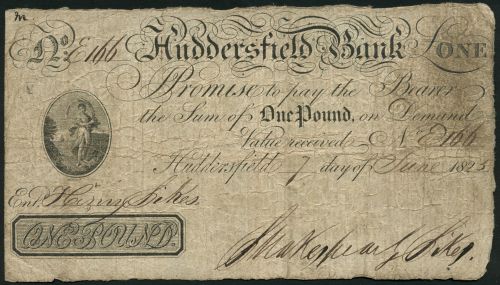 No E166 Huddersfield Bank £ONE
Promise to pay the Bearer
the Sum of One Pound, on Demand
Value received No E166
Huddersfield 7 day of June 1825
Entd Henry Sikes
ONE POUND.
Shakespear G Sikes